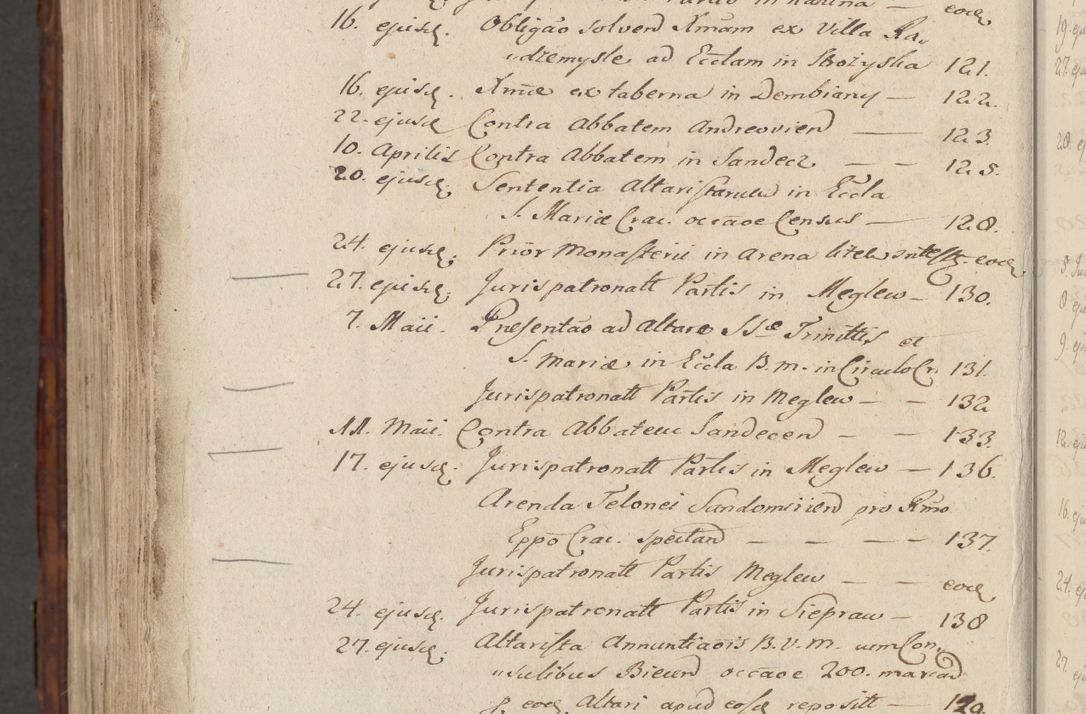 16. ejusd. Obligāo solvend Xmam ex Villa Ra,
„dzemysle, ad Ecclam in Strożyska 121.
16. ejusd. Xmæ ex taberna in Dembiany — 122.
22. ejusd Contra Abbatem Andreoviend — 123.
10. Aprilis Contra Abbatem in Sandecz — — 125.
20. ejusd. Sententia Altaristarum in Eccla
S. Mariæ Crac. occaoe Census — 128.
24. ejusd. Prior Monasterii in Arena eod
27. ejusd. Jurispatronatt Partis in Meglew — 130.
7. Maii. Presentāo ad Altare SSæ Trinittis et
S. Mariæ in Eccla B. m. in Circulo Cr. 131.
Jurispatronatt Partis in Meglew — — 132
11. Maii. Contra Abbatem Sandecend — — 133.
17. ejusd. Jurispatronatt Partis in Meglew — 136.
Arenda Telonei Sandomiriend pro Rmo
Eppō Crac. spectand — — — — 137.
Jurispatronatt Partis Meglew — — eod
24. ejusd. Jurispatronatt Partis in Siepraw — 138
27. ejusd. Altarista Annuntiaois B. V. M. cum Con,
„sulibus Biecend occaoe 200. marcad
p. eod Altari apud eosd repositt —